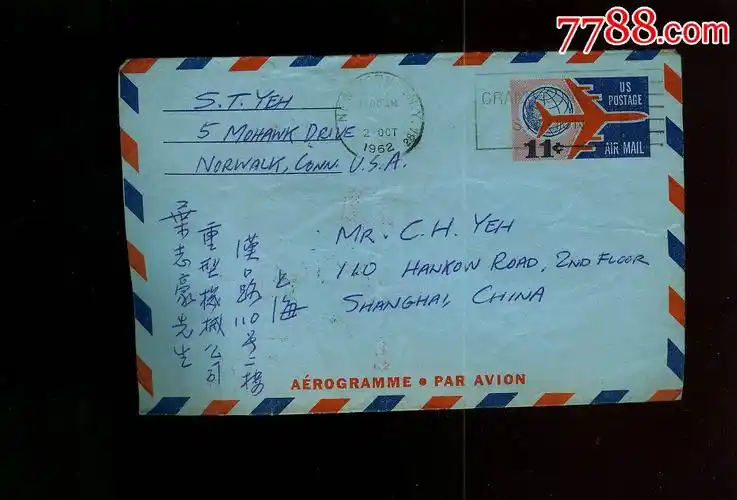 7788.com
S.T. YEH
5 MOHAWK DRIVE
NORWALK, CONN. U.S.A.
2 OCT
1962
US
POSTAGE
11¢
AIR MAIL
MR. C.H. YEH
110 HANKOW ROAD, 2ND FLOOR
SHANGHAI, CHINA
上海
漢口路110号二楼
重型機械公司
葉志豪先生
AÉROGRAMME • PAR AVION